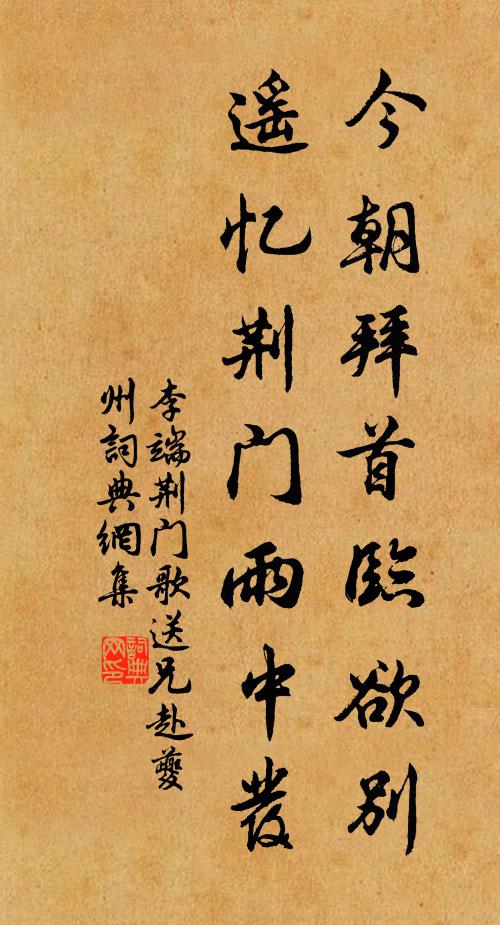 今朝拜首臨欲別
遥忆荆门雨中發
李端荆门歌送兄赴夔
州詞典網集
詞典
网印